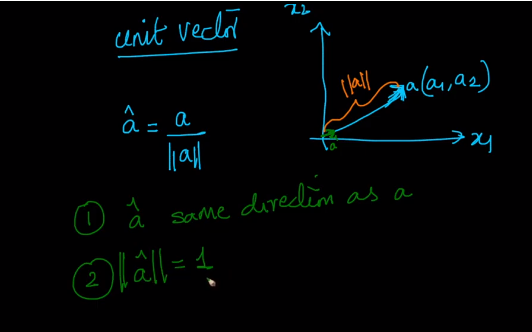 unit vector
x2
||a||
a(a1, a2)
â = a / ||a||
â
x1
① â same direction as a
② ||â|| = 1